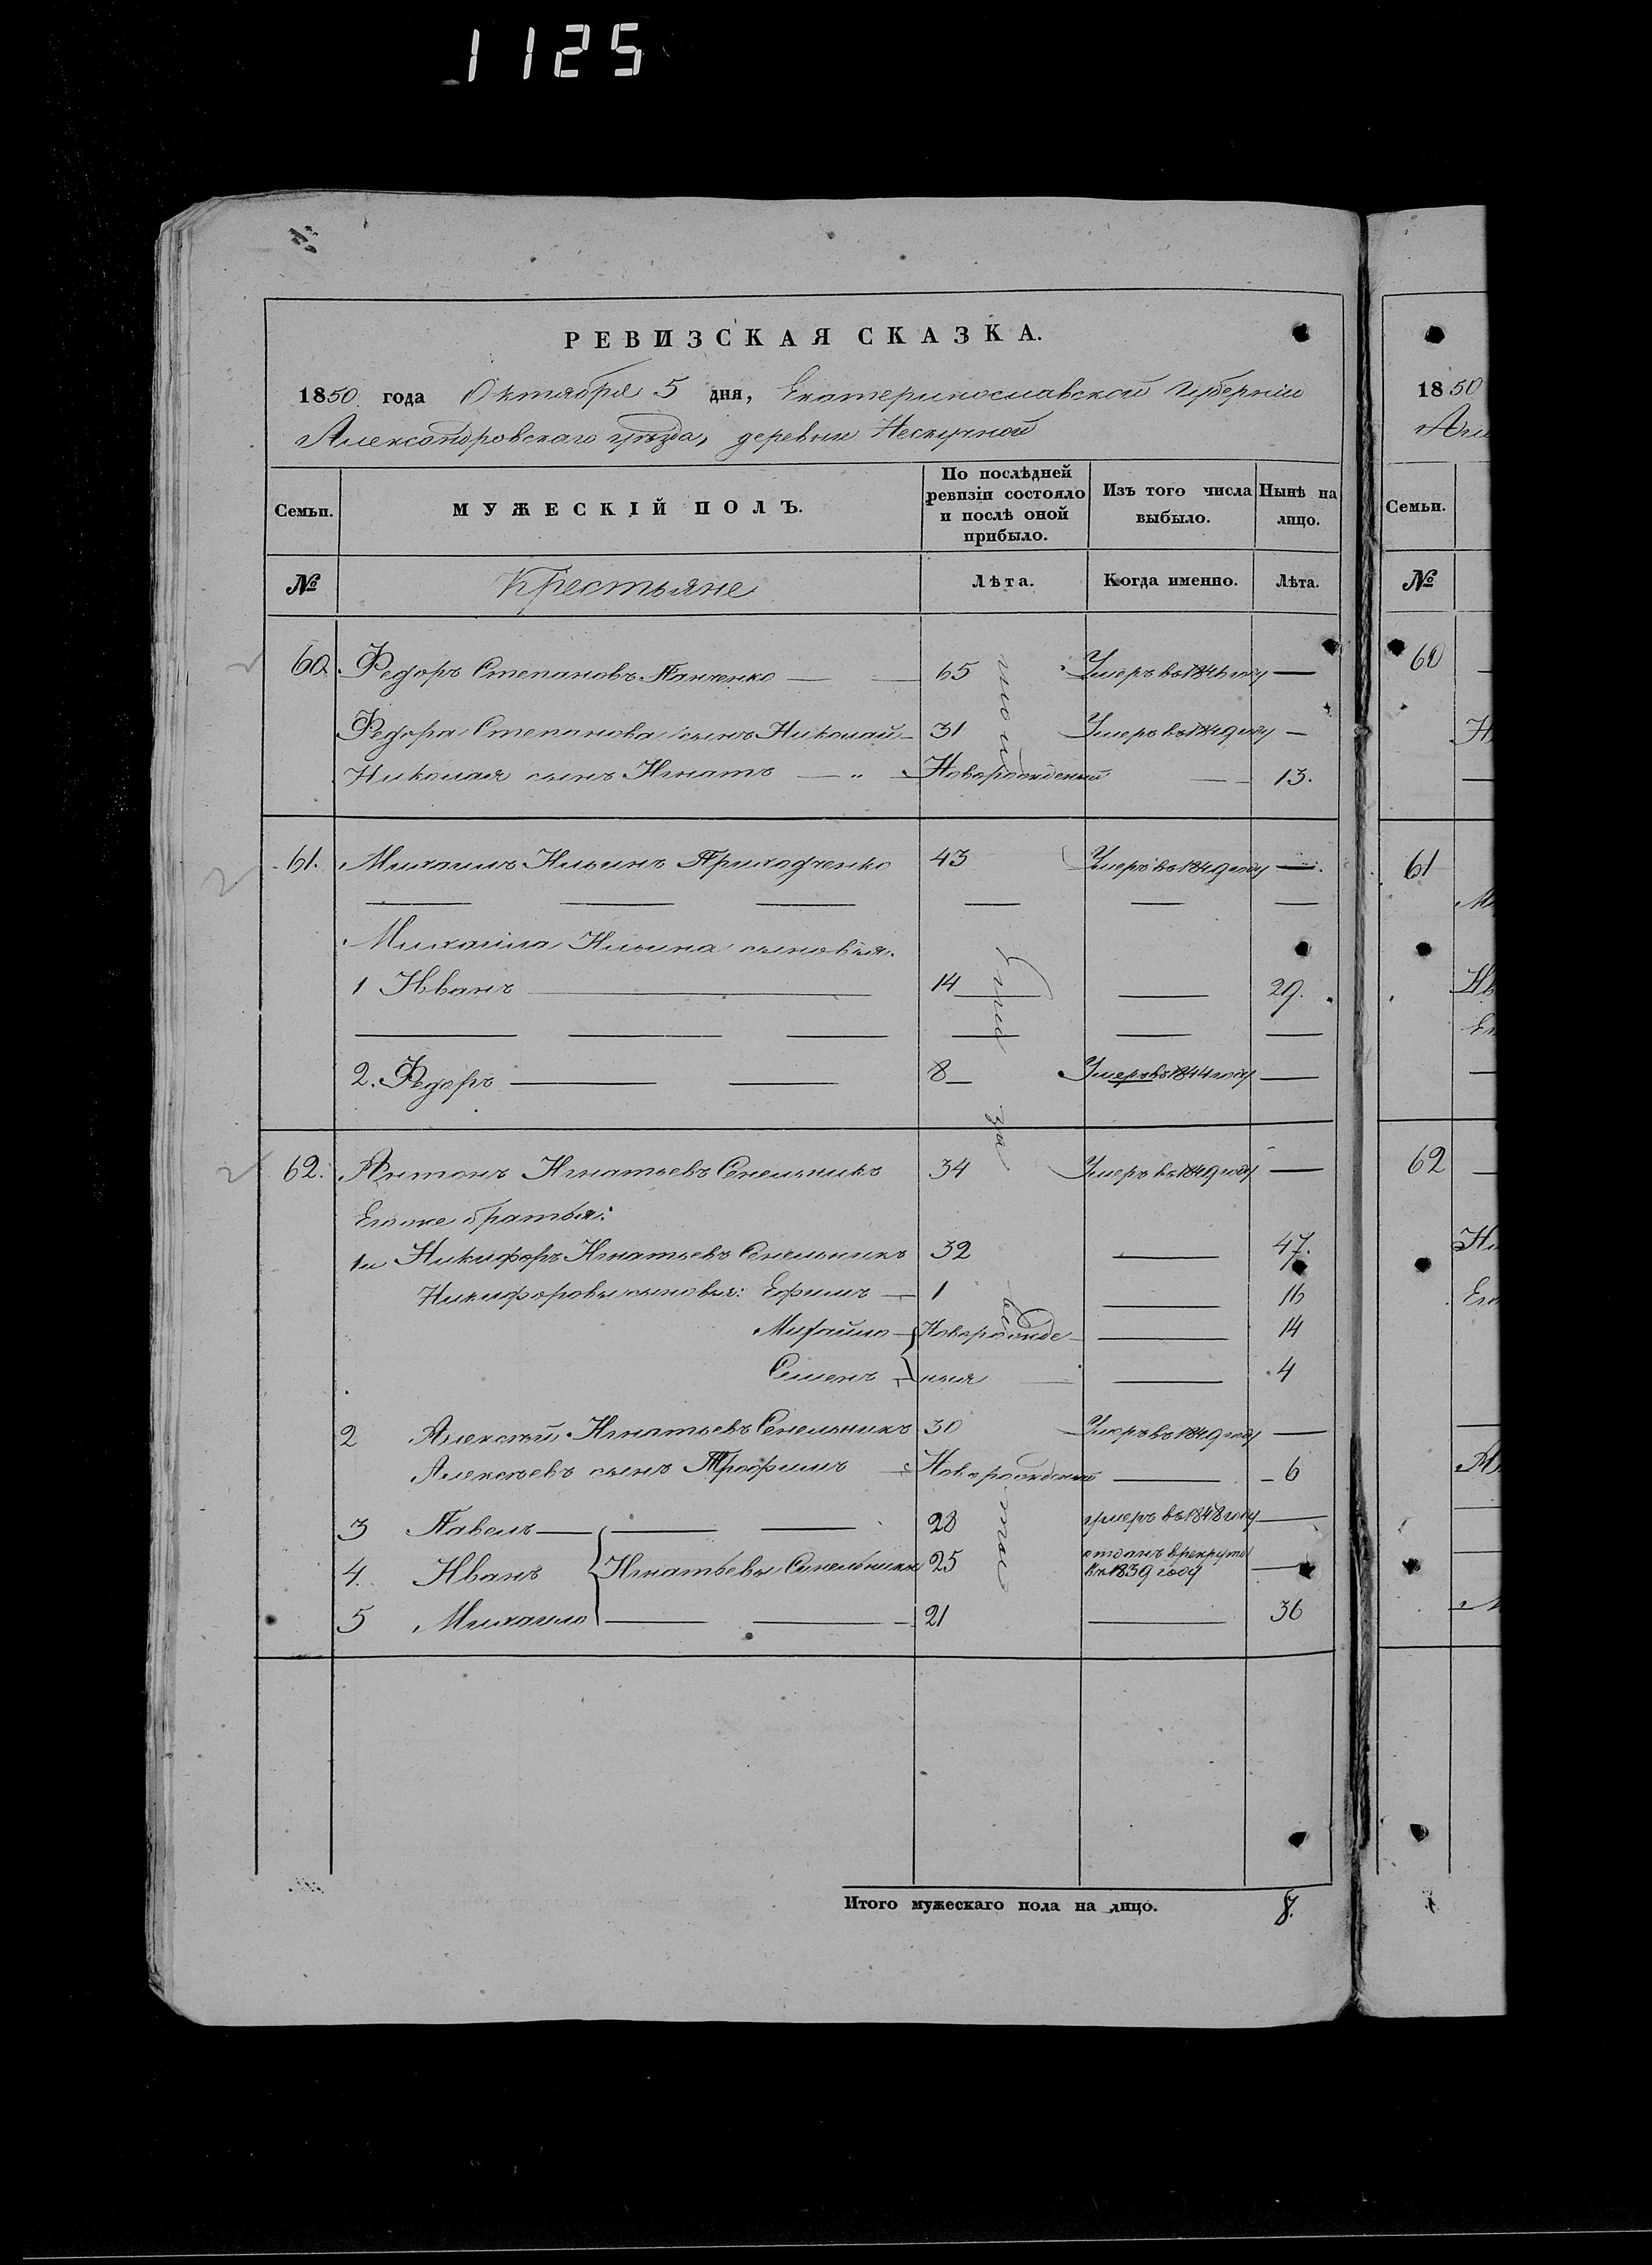 1125
РЕВИЗСКАЯ СКАЗКА.
1850 года Октября 5 дня, Екатеринославской Губерніи
Александровскаго уѣзда, деревни Нескучной
Семьи. МУЖЕСКІЙ ПОЛЪ. По послѣдней ревизіи состояло и послѣ оной прибыло. Изъ того числа выбыло. Нынѣ на лицо.
№ Крестьяне Лѣта. Когда именно. Лѣта.
60. Федоръ Степановъ Панченко — — 65 Умеръ въ 1846 году —
Федора Степанова сынъ Николай — 31 Умеръ въ 1849 году —
Николая сынъ Игнатъ — „ — Новорожденный — 13.
61. Михаилъ Ильинъ Приходченко 43 Умеръ въ 1849 году —.
Михаила Ильина сыновья:
1 Иванъ — 14 — 29.
2. Федоръ — — 8 — Умеръ въ 1844 году —
62. Антонъ Игнатьевъ Синельникъ 34 Умеръ въ 1849 году —
Его же братья:
1й Никифоръ Игнатьевъ Синельникъ 32 — 47.
Никифоровы сыновья: Ефимъ — 1 — 16
Михайло — Новорожде- — 14
Семенъ — ныя — 4
2 Алексѣй Игнатьевъ Синельникъ 30 Умеръ въ 1849 году —
Алексѣевъ сынъ Трофимъ — Новорожденный — 6
3 Павелъ — — — 28 умеръ въ 1848 году —
4. Иванъ Игнатьевы Синельники 25 отданъ в рекруты въ 1839 году —
5 Михаило — — 21 — 36
Итого мужескаго пола на лицо. 8.
1850
№
Семьи.
60
61
62